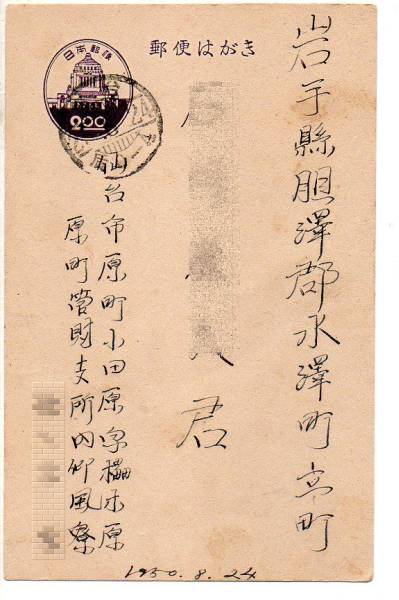 郵便はがき
日本郵便
2.00
岩手縣胆澤郡水澤町立町
君
仙台市原町小田原字櫑木原
原町管財支所内仰風寮
1950.8.24